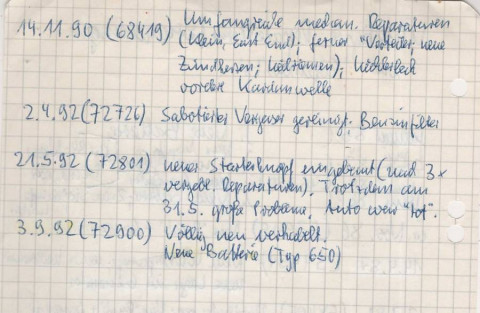 14.11.90 (68419) Umfangreiche mechan. Reparaturen
(Klein, East End); ferner Verteiler, neue
Zündkerzen; Keilriemen);
vordere Kardanwelle
2.4.92 (72726) Vergaser gereinigt; Benzinfilter
21.5.92 (72801) neuer Starterknopf eingebaut (nach 3x
vergebl. Reparaturen). Trotzdem am
31.5. große Probleme, Auto war "tot".
3.9.92 (72900) Völlig neu verkabelt.
Neue Batterie (Typ 650)